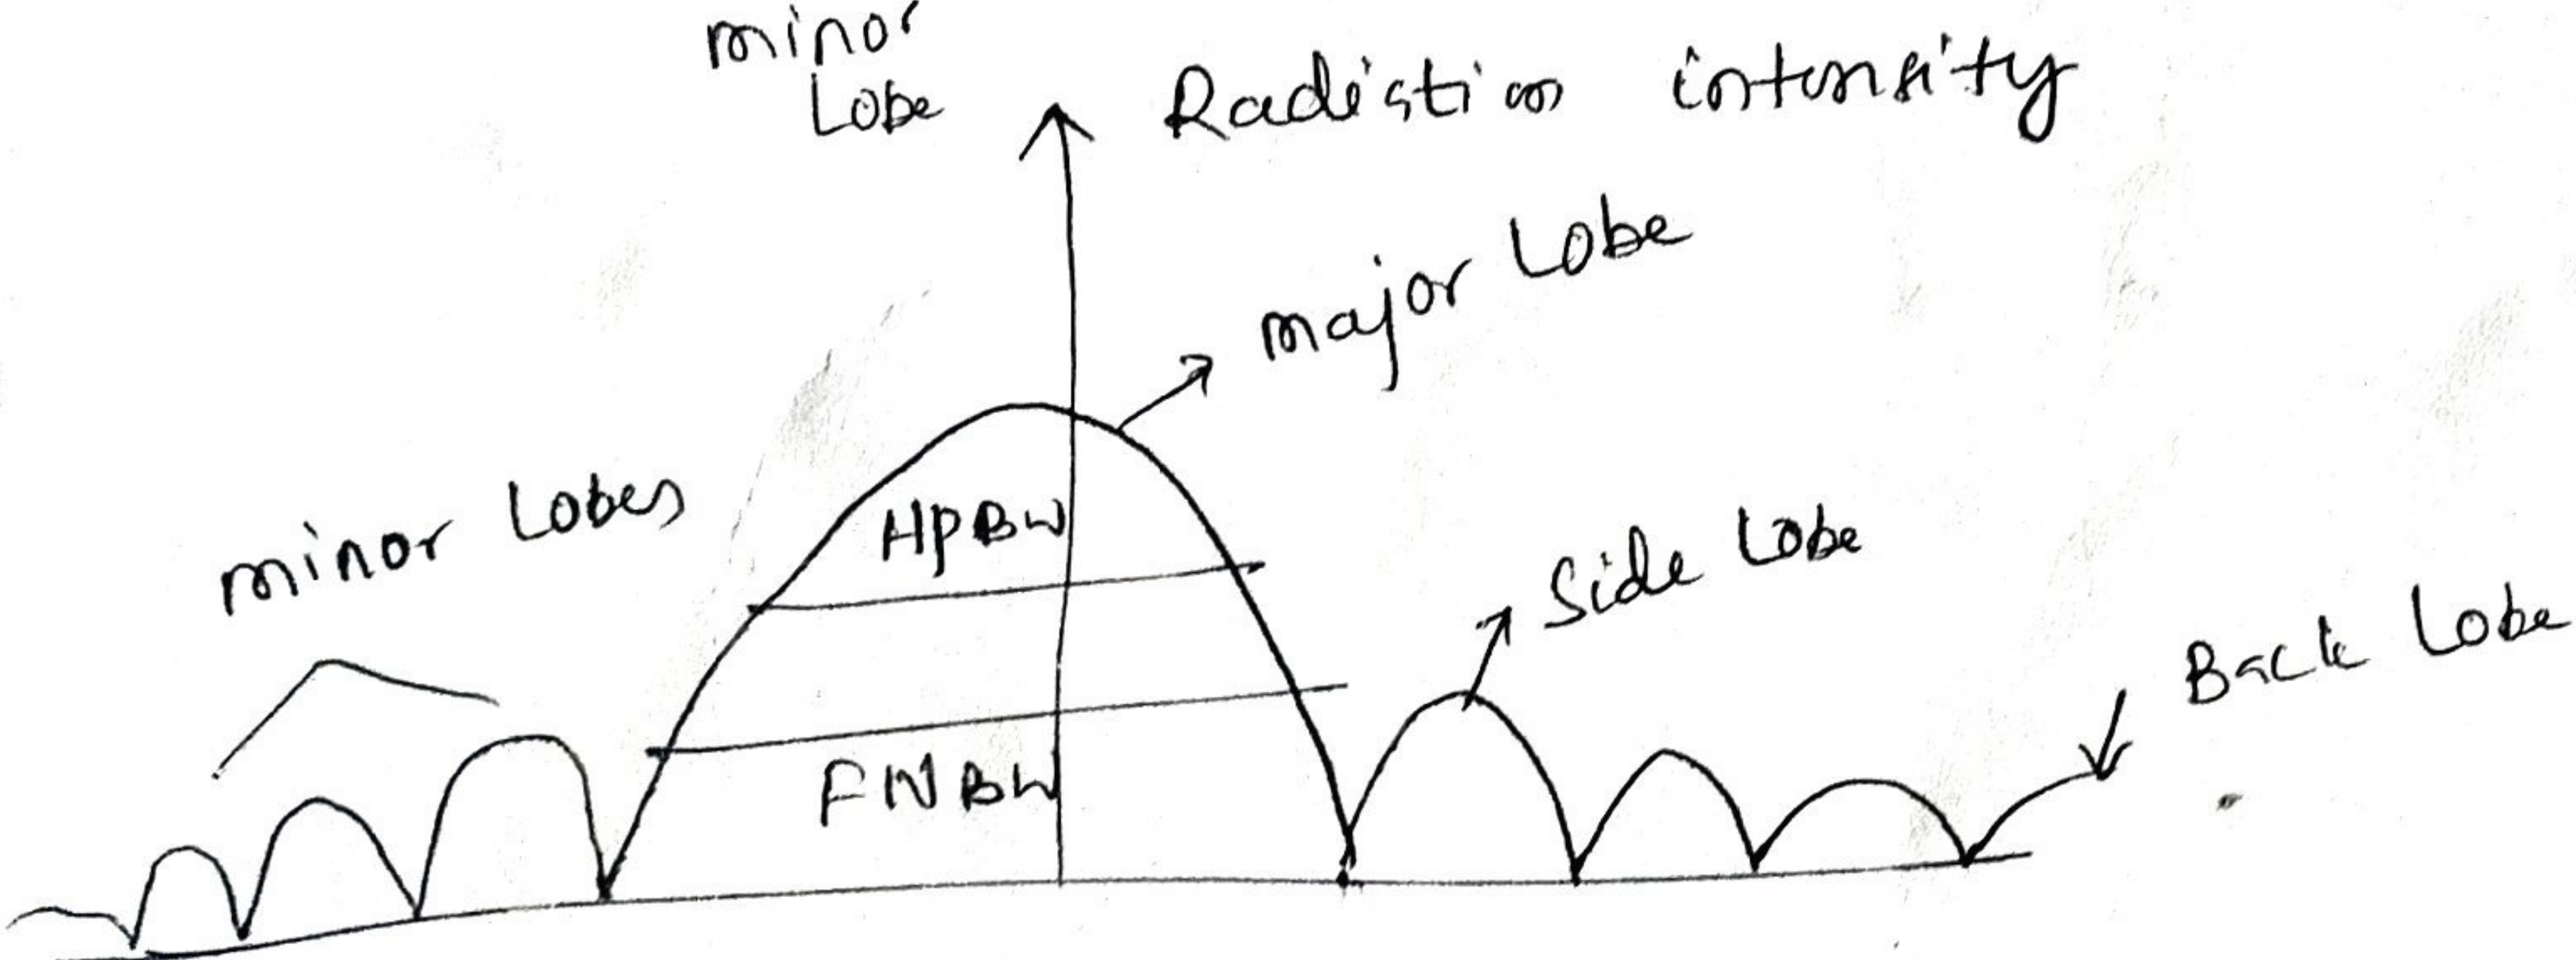 minor
Lobe
Radiation intensity
major Lobe
minor Lobes
HPBW
Side Lobe
Back Lobe
FNBW